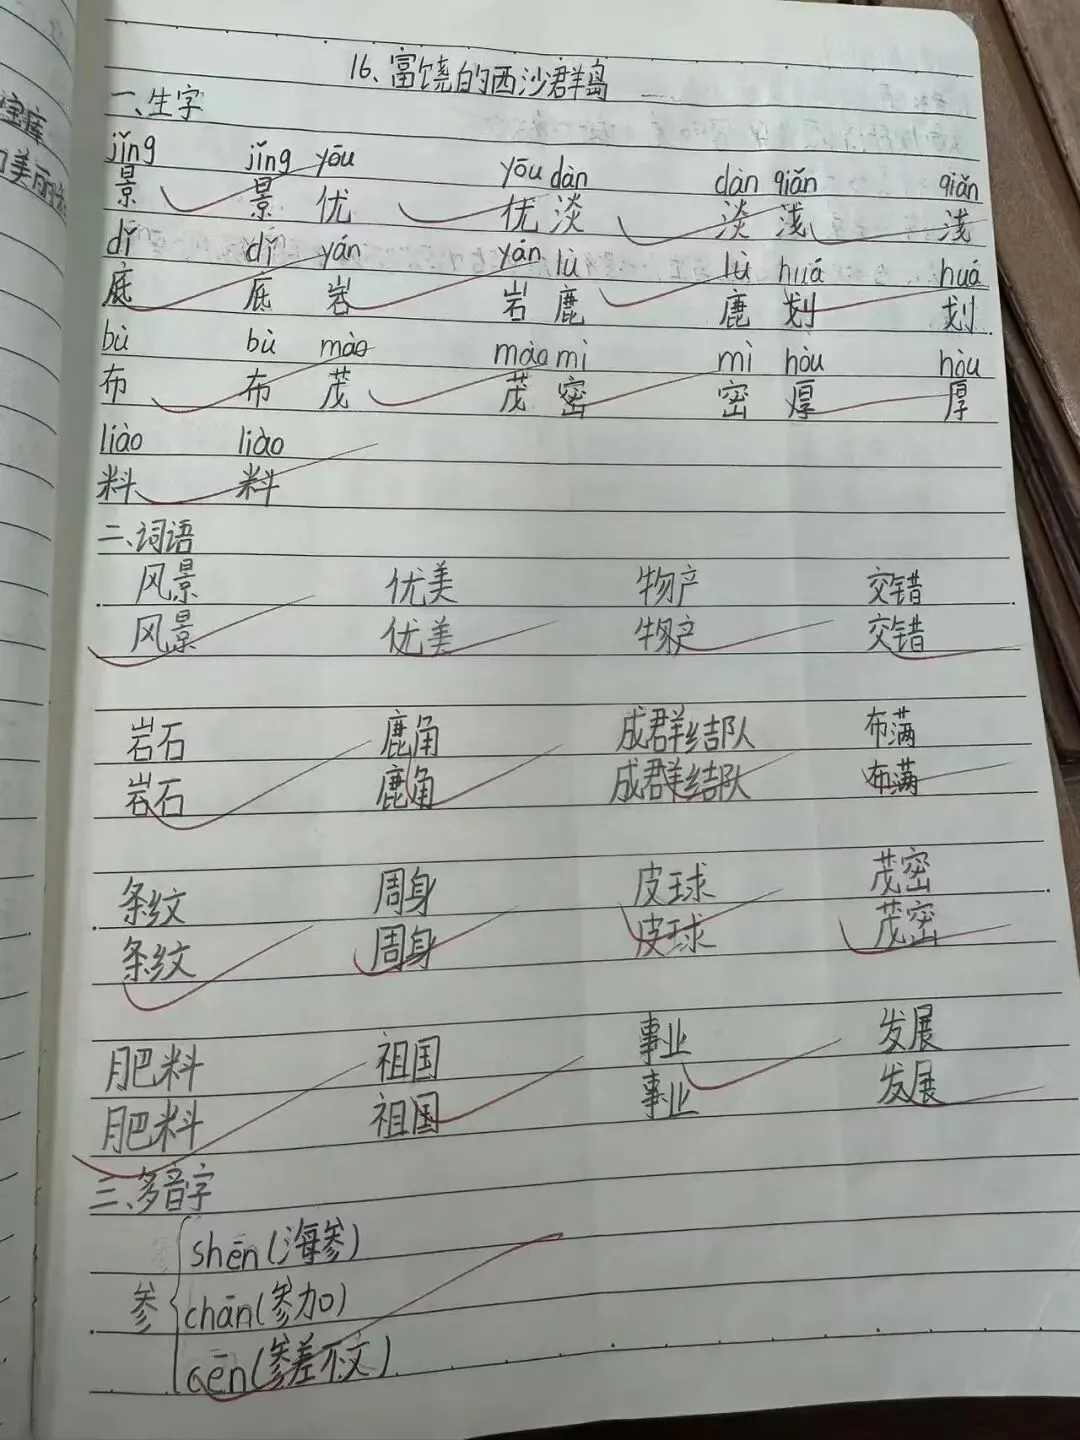 宝库
美丽
16、富饶的西沙群岛
一、生字
jǐng jǐng yōu yōu dàn dàn qiǎn qiǎn
景 景 优 优 淡 淡 浅 浅
dǐ dǐ yán yán lù lù huá huá
底 底 岩 岩 鹿 鹿 划 划
bù bù mào mào mì mì hòu hòu
布 布 茂 茂 密 密 厚 厚
liào liào
料 料
二、词语
风景 优美 物产 交错
风景 优美 物产 交错
岩石 鹿角 成群结队 布满
岩石 鹿角 成群结队 布满
条纹 周身 皮球 茂密
条纹 周身 皮球 茂密
肥料 祖国 事业 发展
肥料 祖国 事业 发展
三、多音字
shēn(海参)
参 chān(参加)
cēn(参差不文)